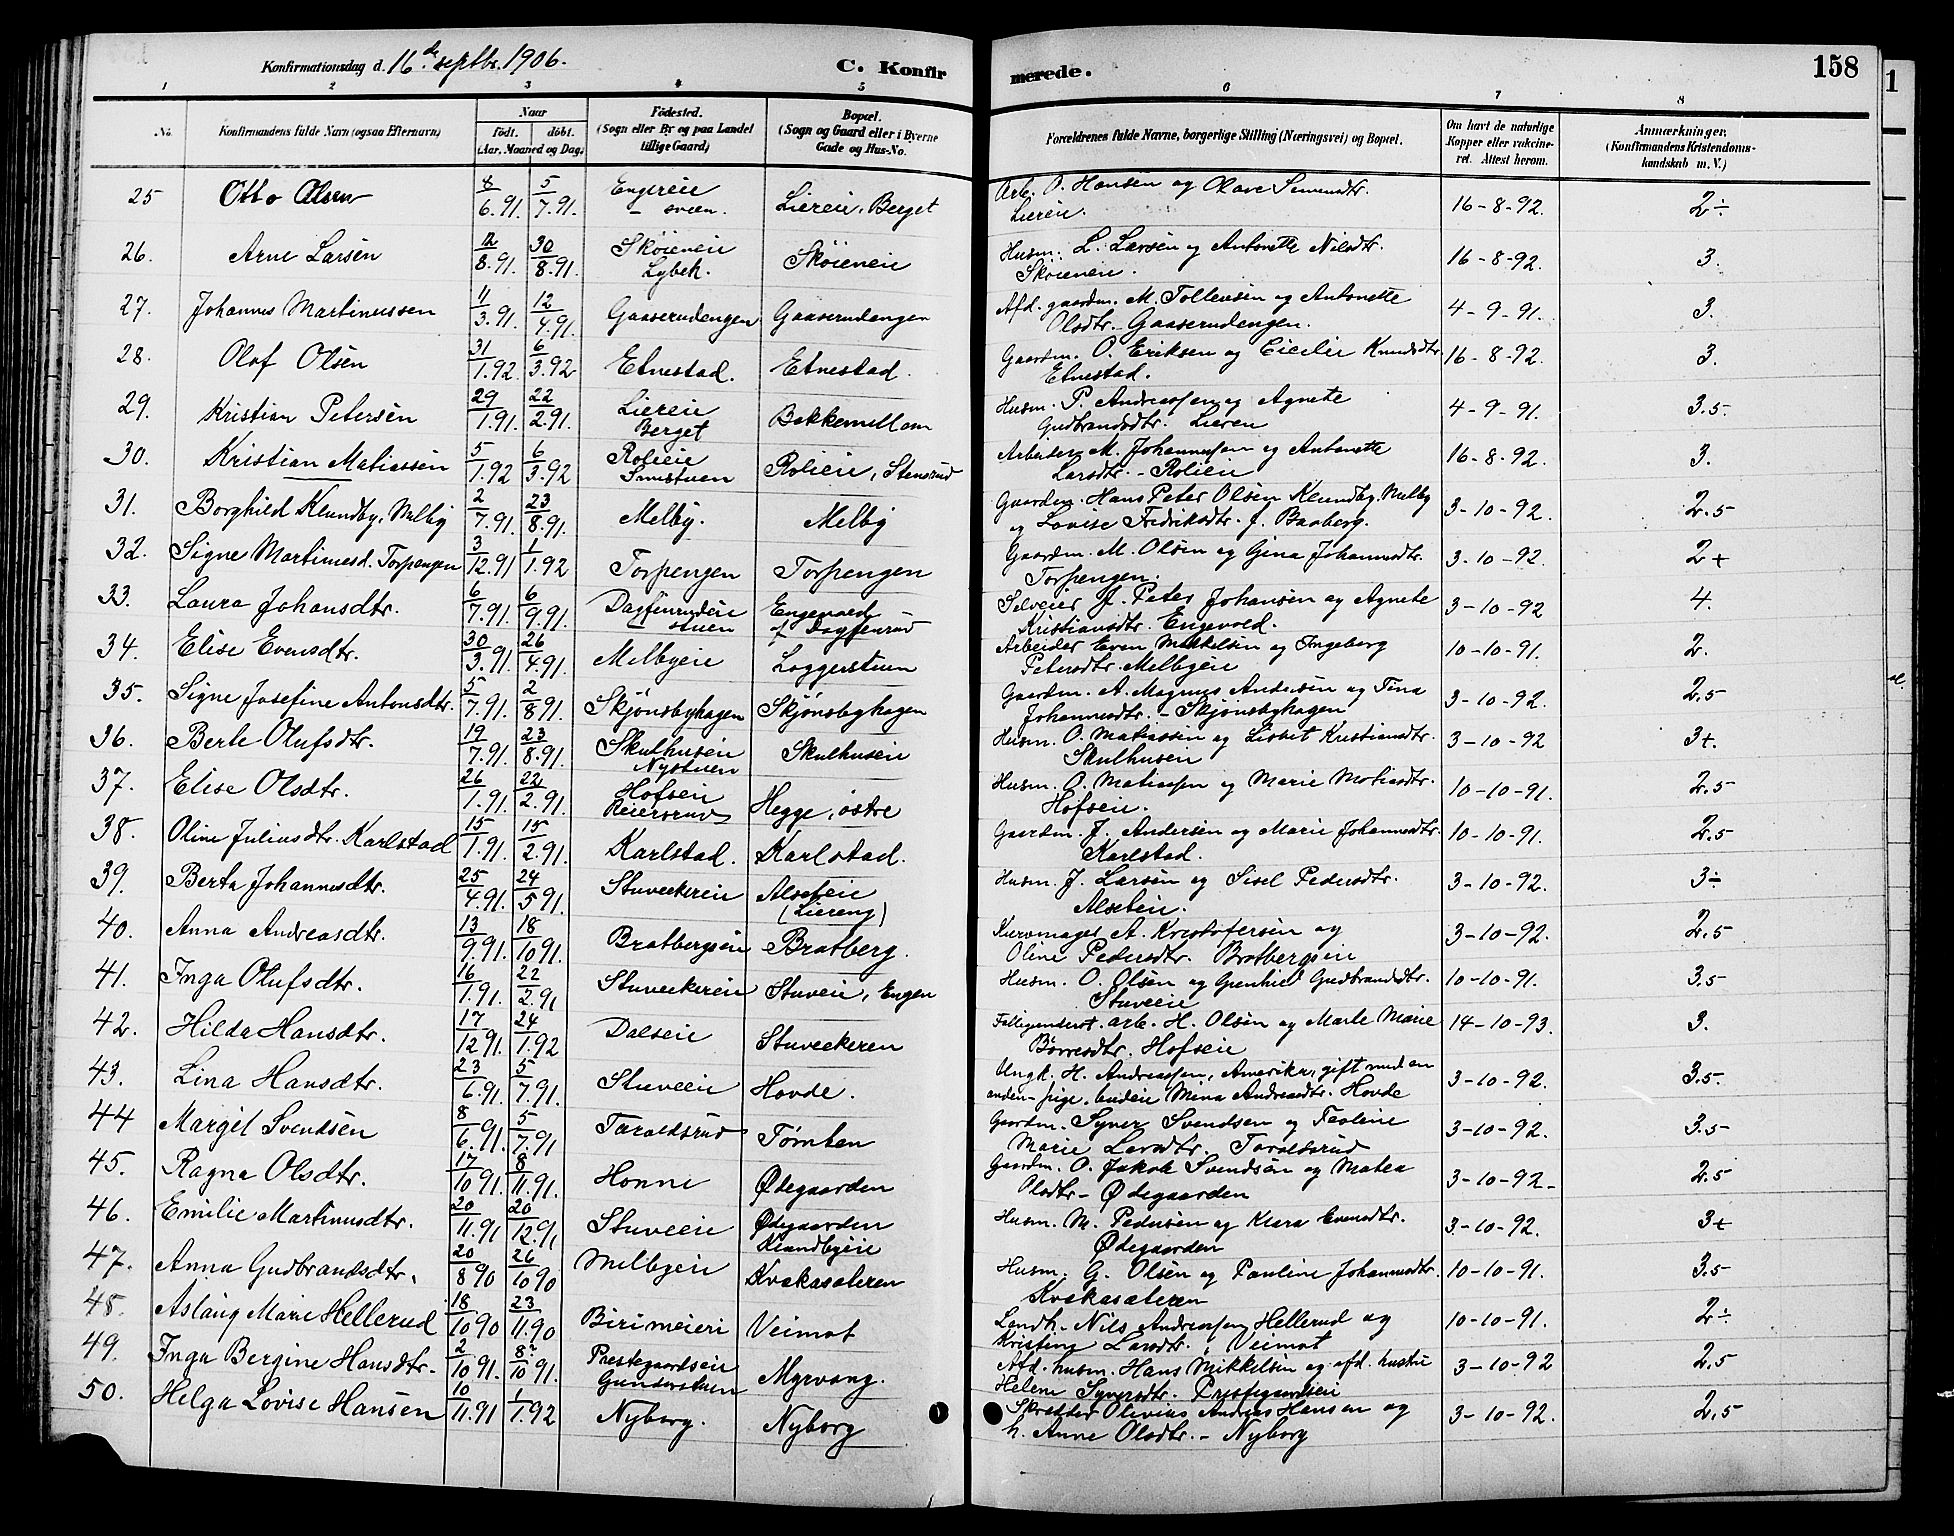 Konfirmationsdag d. 16de septbr. 1906.
C. Konfir
merede.
158
1
1 2 3 4 5 6 7 8
No.
Konfirmandens fulde Navn (ogsaa Efternavn)
Naar
født. døbt.
(Aar, Maaned og Dag.)
Fødested.
(Sogn eller By og paa Landet
tillige Gaard)
Bopæl.
(Sogn og Gaard eller i Byerne
Gade og Hus-No.
Forældrenes fulde Navne, borgerlige Stilling (Næringsvei) og Bopæl.
Om havt de naturlige
Kopper eller vakcine-
ret. Attest herom.
Anmærkninger.
(Konfirmandens Kristendoms-
kundskab m. V.)
25 Otto Olsen 8/6.91 5/7.91 Engereie Liereie, Berget Arb. O. Hansen og Olave Simensdtr. 16-8-92. 2÷
- sveen. Liereie.
26. Arne Larsen 12/8.91. 30/8.91. Skøieneie Skøieneie Husm. L. Larsen og Antonette Nilsdtr. 16-8-92. 3.
Lybek. Skøieneie.
27. Johannes Martinussen 11/3.91. 12/4.91. Gaaserudengen Gaaserudengen Afd. gaardm. M. Tollevsen og Antonette 4-9-91. 3.
Olsdtr. Gaaserudengen.
28. Olaf Olsen 31/1.92. 6/3.92 Etnestad. Etnestad. Gaardm. O. Eriksen og Cicilie Knudsdtr. 16-8-92. 3.
Etnestad.
29. Kristian Petersen 29/1.91. 22/2.91. Liereie Bakkemellom Husm. P. Andreassen og Agnete 4-9-91. 3.5.
Berget Gudbrandsdtr. Lieren
30. Kristian Matiassen 5/1.92 6/3.92 Rolieie Rolieie, Stensrud Arbeider M. Johannessen og Antonette 16-8-92. 3.
Larsdtr. - Rolieie
31. Borghild Klundby, Melby 2/7.91. 23/8.91. Melby. Melby Gaardm. Hans Peter Olsen Klundby, Melby 3-10-92. 2.5
og Lovise Fredriksdtr. f. Baaberg.
32. Signe Martinusd. Torpengen 3/12.91 1/1.92 Torpengen Torpengen Gaardm. M. Olsen og Gina Johannesdtr. 3-10-92. 2+
Torpengen.
33. Laura Johansdtr. 6/7.91. 6/9.91. Dagfinrudeie Engevold Selveier J. Peter Johansen og Agnete 3-10-92 4.
stuen f Dagfinrud Kristiansdtr. Engevold.
34. Elise Evensdtr. 30/3.91. 26/4.91. Melbyeie Arbeider Even Mikkelsen og Ingeborg 10-10-91. 2.
Petersdtr. Melbyeie
35. Signe Josefine Antonsdtr. 5/7.91. 2/8 91. Skjønsbyhagen Skjønsbyhagen Gaardm. A. Magnus Andersen og Tina 3-10-92. 2.5
Johannesdtr. - Skjønsbyhagen
36. Berte Olufsdtr. 19/7.91. 23/8.91. Skulhuseie Skulhuseie Husm. O. Matiassen og Lisbet Kristiansdtr. 3-10-92 3+.
Nystuen Skulhuseie
37. Elise Olsdtr. 26/1.91. 22/2.91. Hofseie Hegge, østre Husm. O. Matiassen og Marie Matiasdtr. 10-10-91. 2.5
Reiersrud Hofseie.
38. Oline Juliusdtr. Karlstad 15/1.91. 15/2.91. Karlstad. Karlstad. Gaardm. J. Andersen og Marie Johannesdtr. 10-10-91. 2.5
Karlstad.
39. Berta Johannesdtr. 25/4.91. 24/5 91. Stuveekereie Alseteie Husm. J. Larsen og Sisel Pedersdtr. 3-10-92. 3÷
(Liereng) Alseteie.
40. Anna Andreasdtr. 13/9.91 18/10 91. Bratbergseie Bratberg. Kurvmager A. Kristofersen og 3-10-92. 2.5
Oline Pedersdtr. Bratbergseie
41. Inga Olufsdtr. 16/1.91. 22/2.91 Stuveekereie Stuveeie, Engen Husm. O. Olsen og Gunhild Gudbrandsdtr. 10-10-91. 3.5
Stuveeie
42. Hilda Hansdtr. 17/12 91. 24/1.92 Dalseie Stuveekeren arb. H. Olsen og Marte Marie 14-10-93. 3.
Børresdtr. Hofseie
43. Lina Hansdtr. 23/6.91. 5/7.91. Stuveeie Hovde. Ungk. H. Andreassen, Amerika, gift med en 3-10-92. 3.5.
anden - pige, Mina Andreasdtr. Hovde
44 Margit Svendsen 8/6.91. 5/7.91 Taraldsrud Tømten Gaardm. Syver Svendsen og Teoline 3-10-92. 3.5
Marie Larsdtr. Taraldsrud
45. Ragna Olsdtr. 17/10 91. 8/11.91. Honne Ødegaarden Gaardm. O. Jakob Svendsen og Matea 3-10-92- 2.5
Olsdtr - Ødegaarden
46. Emilie Martinusdtr. 20/11.91 20/12.91 Stuveeie Ødegaarden Husm. M. Pedersen og Klara Evensdtr. 3-10-92. 3+
Klundbyeie Ødegaarden
47. Anna Gudbrandsdtr. 20/8 90 26/10 90 Melbyeie Kvakasæteren Husm. G. Olsen og Pauline Johannesdtr. 10-10-91. 3.5
Kvakasæteren
48. Aslaug Marie Hellerud 18/10 90 23/11.90 Birimeieri Veimot Landh. Nils Andreassen Hellerud og 10-10-91. 2÷
Kristine Larsdtr., Veimot
49. Inga Bergine Hansdtr. 2/10 91. 8?/10 91. Prestegaardseie Myrvang. Afd. husm. Hans Mikkelsen og afd. hustru 3-10-92 2.5
Gunderstuen Helene Syversdtr. Prestegaardseie
50. Helga Lovise Hansen 10/11.91 1/1.92 Nyborg. Nyborg Skrædder Olivius Andreas Hansen og 3-10-92. 2.5
h. Anne Olsdtr. - Nyborg